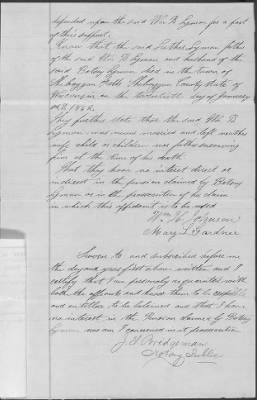 depended upon the said Wm B Lyman for a part
of his support.
Know that the said Luther Lyman father
of the said Wm B Lyman and husband of the
said Betsey Lyman died in the town of
Sheboygan Falls Sheboygan County State of
Wisconsin on the day of January
A.D. 1852.
They further state that the said Wm B
Lyman was never married and left neither
wife child or children nor father surviving
him at the time of his death.
That they have no interest direct or
indirect in the pension claimed by Betsey
Lyman or in the prosecution of her claim
in which this affidavit is to be used
Wm H. Johnson
Mary L Gardner
Sworn to and subscribed before me
the day and year first above written and I
certify that I am personally acquainted with
both the affiants and know them to be respectable
and entitled to be believed and that I have
no interest in the Pension claimed by Betsey
Lyman nor am I concerned in its prosecution
J. S. Bridgeman
Notary Public